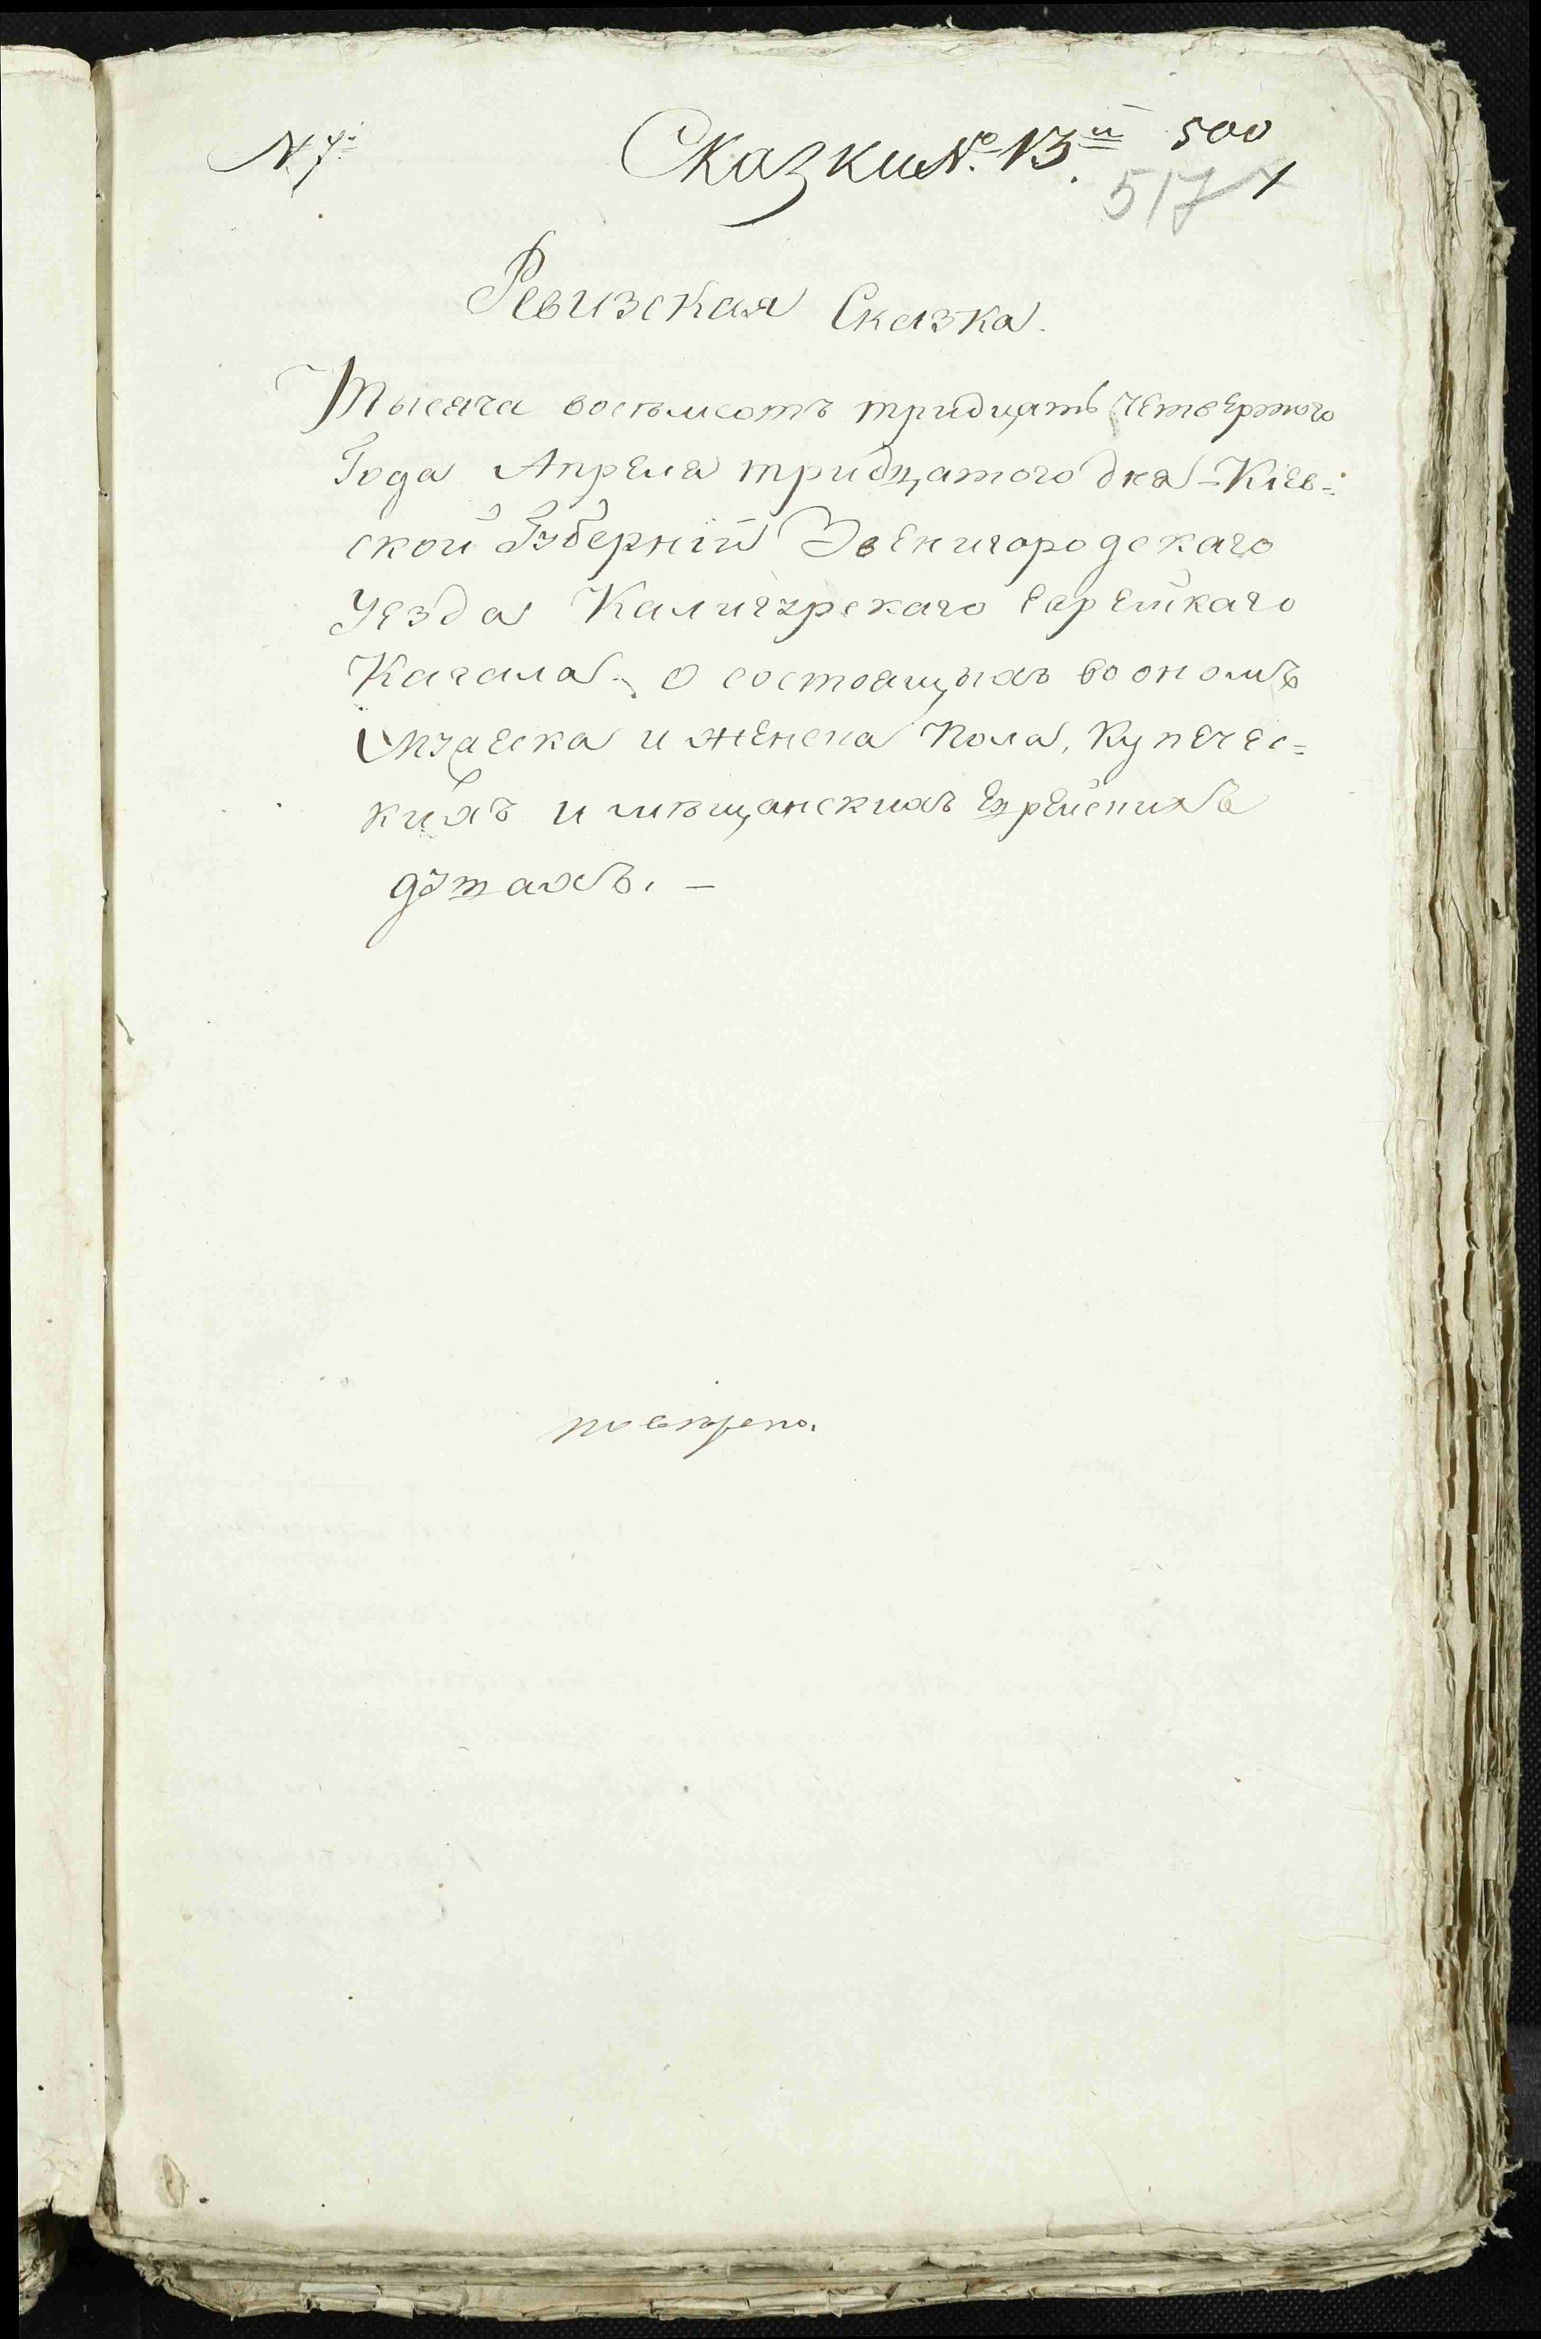 N 7:
Сказки № 13й 500
517
Ревизская Сказка.
Тысяча восемсотъ тридцать четвертого
Года Апреля тридцатого дня - Кіев=
ской Губерніи Звенигородскаго
Уезда Калигурскаго еврейскаго
Кагала. О состоящихъ во ономъ
мужеска и женска пола, Купечес=
кихъ и мѣщанскихъ Еврейскихъ
душахъ. —
повѣрено.